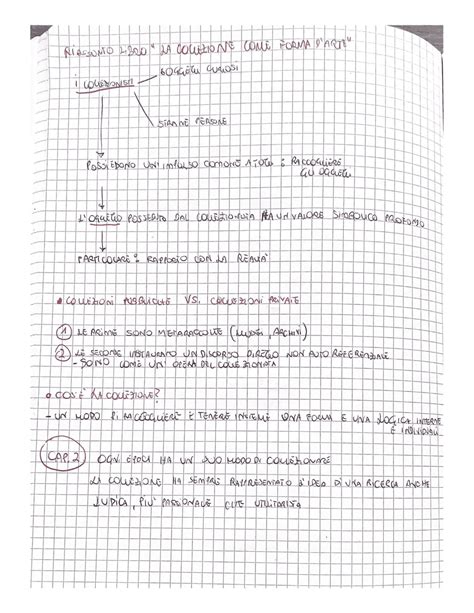 RIASSUNTO LIBRO "LA COLLEZIONE COME FORMA D'ARTE"
SOGGETTI CURIOSI
I COLLEZIONISTI
STRANE PERSONE
POSSIEDONO UN'IMPULSO COMUNE A TUTTI: RACCOGLIERE
GLI OGGETTI
L'OGGETTO POSSEDUTO DAL COLLEZIONISTA HA UN VALORE SIMBOLICO PROFONDO
PARTICOLARE: RAPPORTO CON LA REALTÀ
• COLLEZIONI PUBBLICHE VS. COLLEZIONI PRIVATE
1 LE PRIME SONO METARACCOLTE (MUSEI, ARCHIVI)
2 LE SECONDE INSTAURANO UN DISCORSO DIRETTO NON AUTOREFERENZIALE
- SONO COME UN'OPERA DEL COLLEZIONISTA
• COS'È LA COLLEZIONE?
- UN MODO DI RACCOGLIERE E TENERE INSIEME UNA FORMA E UNA LOGICA INTERNE
E INDIVIDUALI
CAP. 2 OGNI EPOCA HA UN SUO MODO DI COLLEZIONARE
LA COLLEZIONE HA SEMPRE RAPPRESENTATO L'IDEA DI UNA RICERCA ANCHE
LUDICA, PIU' PASSIONALE CHE UTILITARISTA